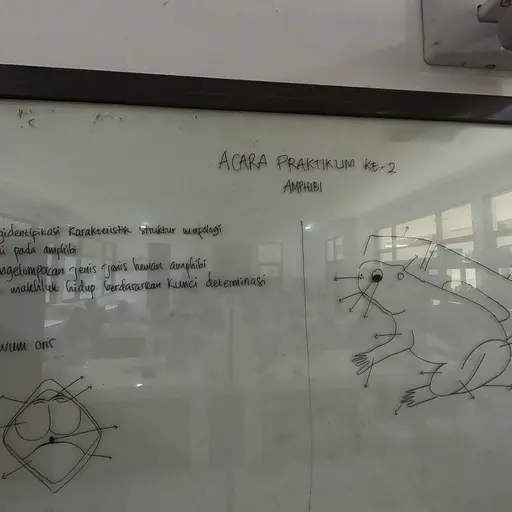 ACARA PRAKTIKUM KE-2
AMPHIBI
gidentifikasi Karakteristik struktur morfologi
pada amplibi
ngelompocan jenis-jenis hewan amphibi
makhluk hidup berdasarkan kunci determinasi
cavum oris